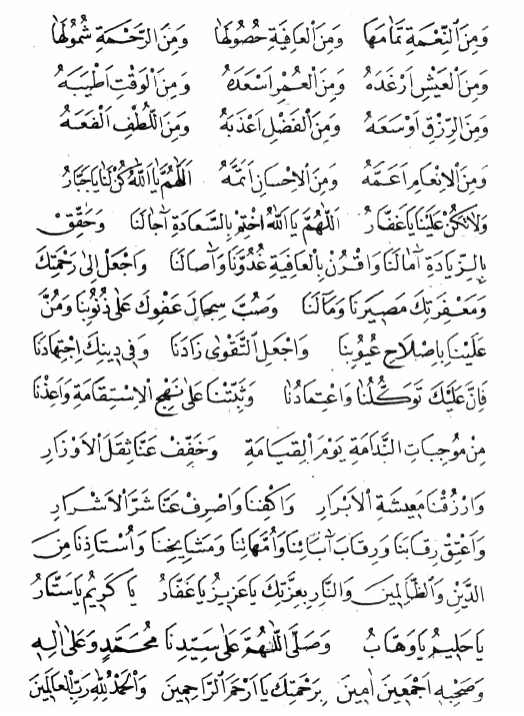 وَمِنَ ٱلنِّعْمَةِ تَمَامَهَا وَمِنَ ٱلْعَافِيَةِ حُصُولَهَا وَمِنَ الرَّحْمَةِ شُمُولَهَا
وَمِنَ ٱلْعَيْشِ اَرْغَدَهُ وَمِنَ ٱلْعُمْرِ اَسْعَدَهُ وَمِنَ ٱلْوَقْتِ اَطْيَبَهُ
وَمِنَ ٱلرِّزْقِ اَوْسَعَهُ وَمِنَ ٱلْفَضْلِ اَعْذَبَهُ وَمِنَ ٱللُّطْفِ اَنْفَعَهُ
وَمِنَ ٱلْاِنْعَامِ اَعَمَّهُ وَمِنَ ٱلْاِحْسَانِ اَتَمَّهُ اَللّٰهُمَّ يَا اَللّٰهُ كُنْ لَنَا يَا جَبَّارُ
وَلَا تَكُنْ عَلَيْنَا يَا غَفَّارُ اَللّٰهُمَّ يَا اَللّٰهُ اخْتِمْ بِالسَّعَادَةِ آجَالَنَا وَحَقِّقْ
بِالزِّيَادَةِ آمَالَنَا وَاقْرُنْ بِالْعَافِيَةِ غُدُوَّنَا وَآصَالَنَا وَاجْعَلْ اِلٰى رَحْمَتِكَ
وَمَغْفِرَتِكَ مَصِيرَنَا وَمَآلَنَا وَصُبَّ سِجَالَ عَفْوِكَ عَلٰى ذُنُوبِنَا وَمُنَّ
عَلَيْنَا بِاِصْلَاحِ عُيُوبِنَا وَاجْعَلِ التَّقْوٰى زَادَنَا وَفِى دِينِكَ اِجْتِهَادَنَا
فَاِنَّ عَلَيْكَ تَوَكُّلُنَا وَاعْتِمَادُنَا وَثَبِّتْنَا عَلٰى نَهْجِ الْاِسْتِقَامَةِ وَاَعِذْنَا
مِنْ مُوجِبَاتِ النَّدَامَةِ يَوْمَ الْقِيَامَةِ وَخَفِّفْ عَنَّا ثِقَلَ الْاَوْزَارِ
وَارْزُقْنَا مَعِيشَةَ الْاَبْرَارِ وَاكْفِنَا وَاصْرِفْ عَنَّا شَرَّ الْاَشْرَارِ
وَاَعْتِقْ رِقَابَنَا وَرِقَابَ آبَائِنَا وَاُمَّهَاتِنَا وَمَشَايِخِنَا وَاُسْتَاذِنَا مِنَ
الدَّيْنِ وَالظَّالِمِينَ وَالنَّارِ بِعِزَّتِكَ يَا عَزِيزُ يَا غَفَّارُ يَا كَرِيمُ يَا سَتَّارُ
يَا حَلِيمُ يَا وَهَّابُ وَصَلَّى اللّٰهُمَّ عَلٰى سَيِّدِنَا مُحَمَّدٍ وَعَلٰى اٰلِهِ
وَصَحْبِهِ اَجْمَعِينَ اٰمِينَ بِرَحْمَتِكَ يَا اَرْحَمَ الرَّاحِمِينَ وَالْحَمْدُ لِلّٰهِ رَبِّ الْعَالَمِينَ